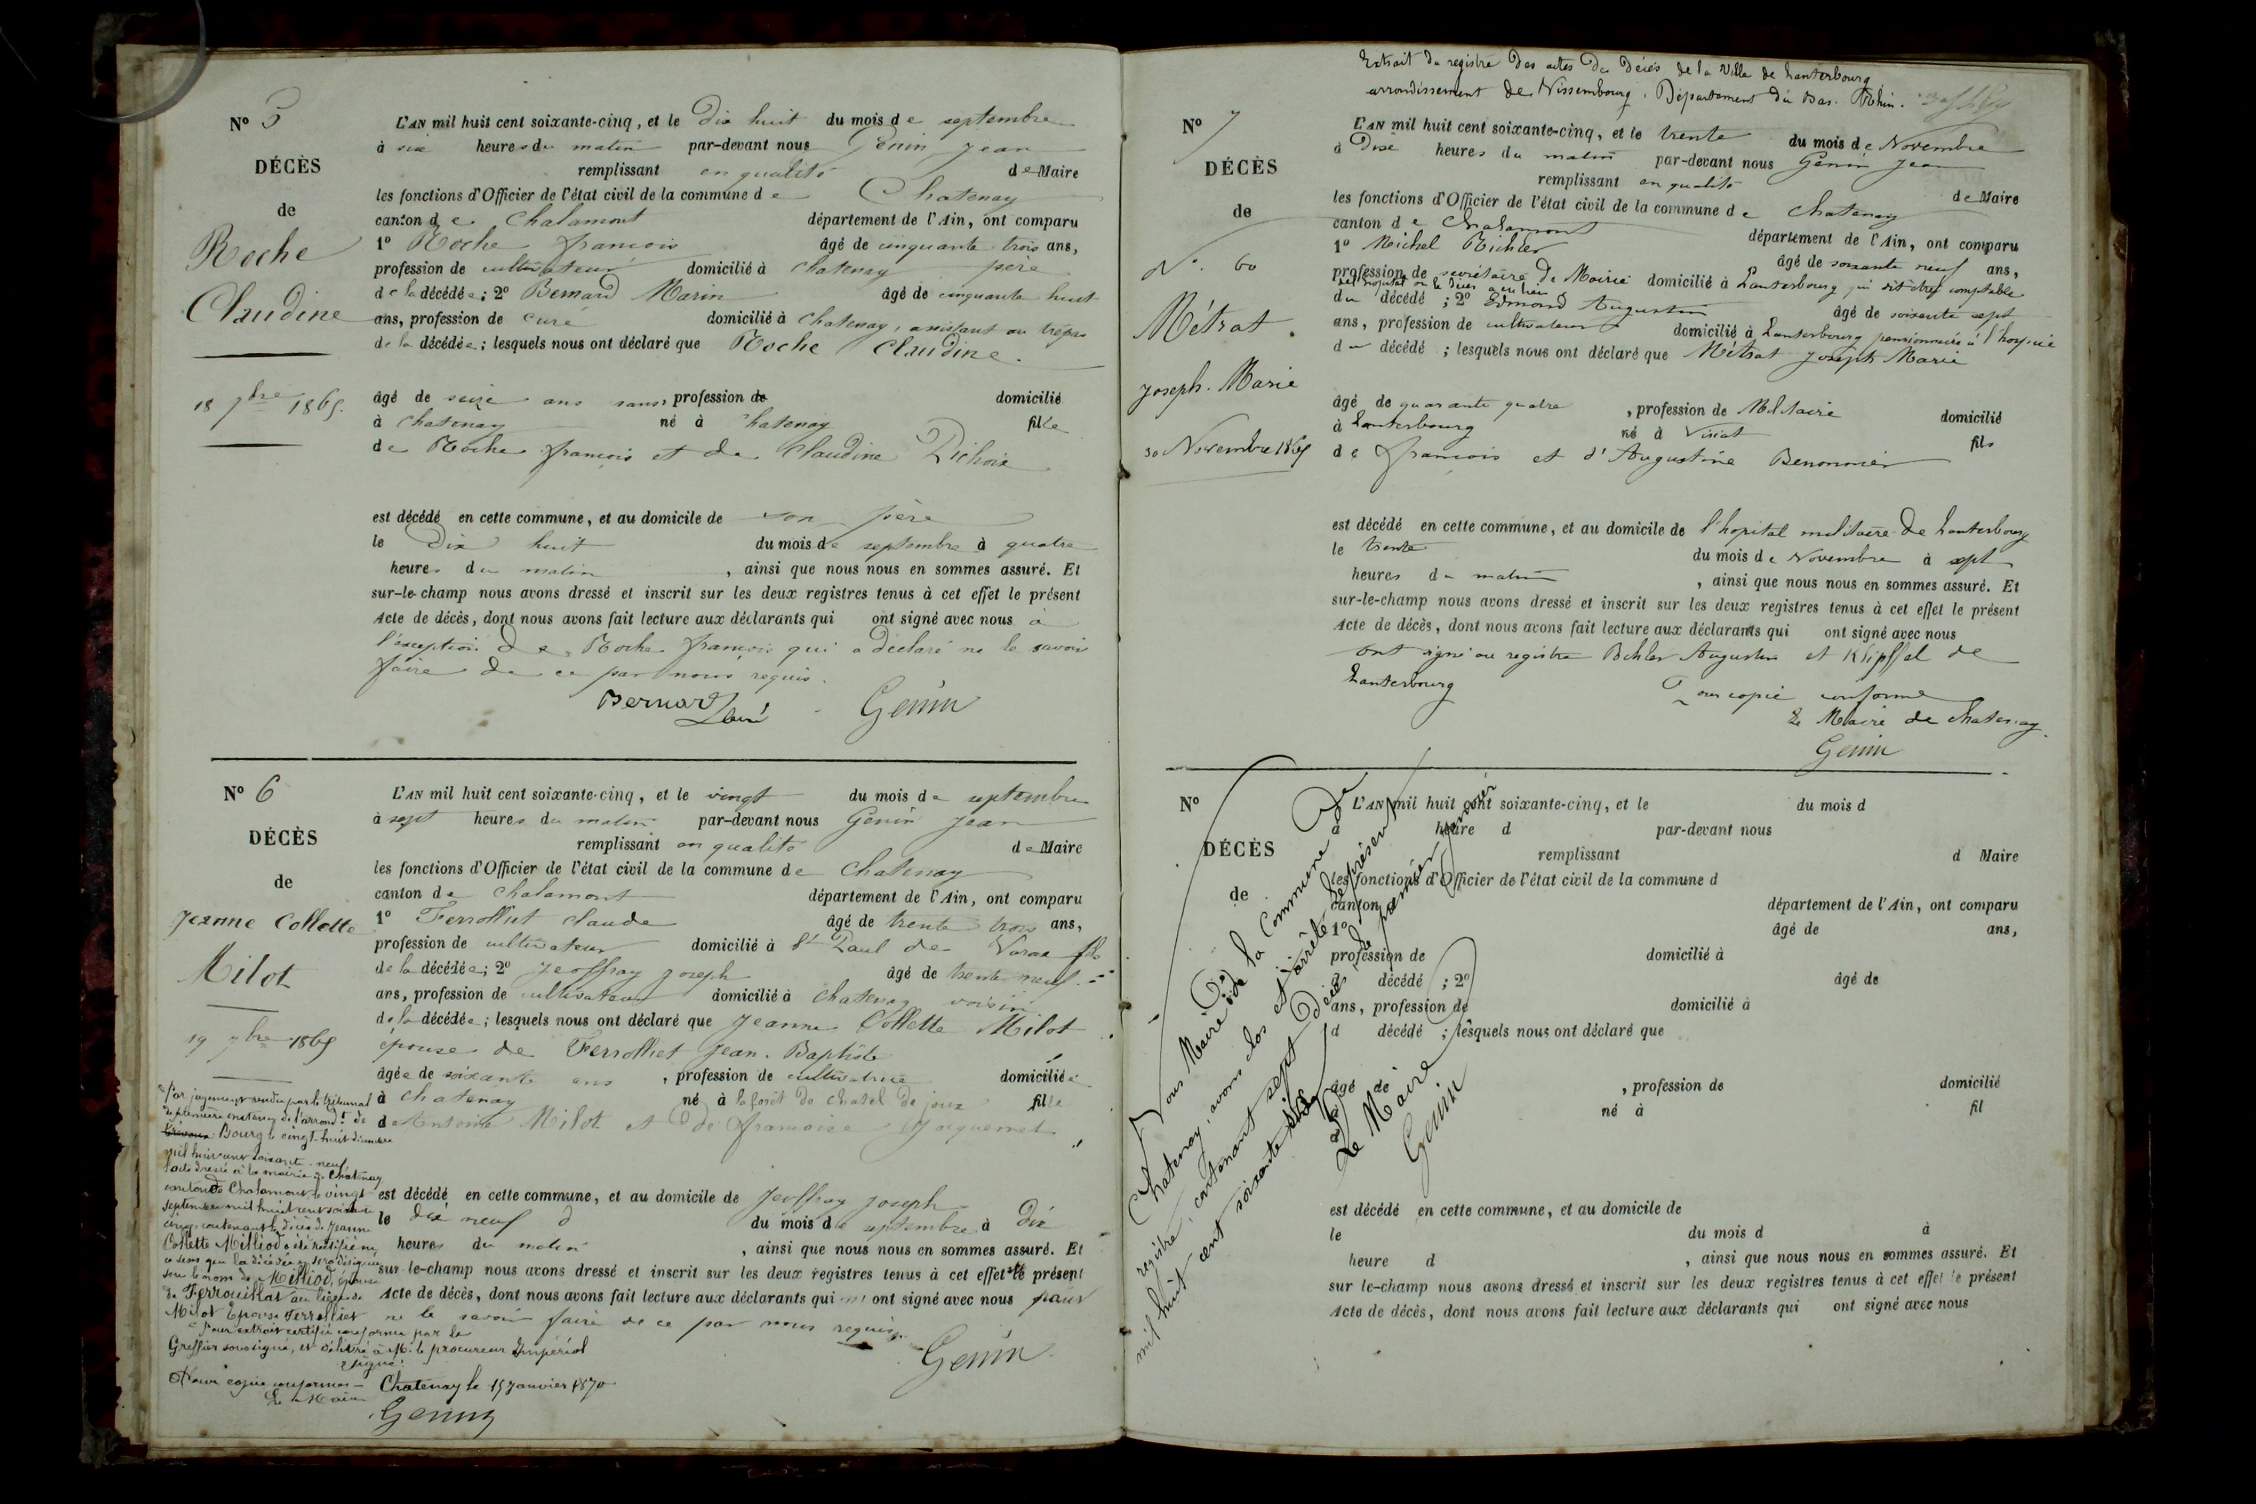 N° 5
DÉCÈS
de
Roche
Claudine
18 7bre 1865.
L'AN mil huit cent soixante-cinq, et le Dix huit du mois de septembre
à six heures du matin par-devant nous Genin Jean
remplissant en qualité de Maire
les fonctions d'Officier de l'état civil de la commune de Chatenay
canton de Chalamont département de l'Ain, ont comparu
1° Roche francois âgé de cinquante trois ans,
profession de cultivateur domicilié à Chatenay père
de la décédée; 2° Bernard Marin âgé de cinquante huit
ans, profession de curé domicilié à Chatenay, assistant au trépas
de la décédée; lesquels nous ont déclaré que Roche Claudine.
âgé de seize ans sans profession de domicilié
à Chatenay né à Chatenay fille
de Roche francois et de Claudine Pichoix
est décédé en cette commune, et au domicile de son père
le Dix huit du mois de septembre à quatre
heures du matin, ainsi que nous nous en sommes assuré. Et
sur-le-champ nous avons dressé et inscrit sur les deux registres tenus à cet effet le présent
Acte de décès, dont nous avons fait lecture aux déclarants qui ont signé avec nous à
l'exception de Roche francois qui a déclaré ne le savoir
faire de ce par nous requis.
Bernard Curé Genin
N° 6
DÉCÈS
de
Jeanne Collette
Milot
19 7bre 1865
L'AN mil huit cent soixante-cinq, et le vingt du mois de septembre
à sept heures du matin par-devant nous Genin Jean
remplissant en qualité de Maire
les fonctions d'Officier de l'état civil de la commune de Chatenay
canton de Chalamont département de l'Ain, ont comparu
1° Ferrolliet claude âgé de trente trois ans,
profession de cultivateur domicilié à St Paul de Varax fils
de la décédée; 2° Jeoffray Joseph âgé de trente neuf
ans, profession de cultivateur domicilié à Chatenay voisin
de la décédée; lesquels nous ont déclaré que Jeanne Collette Milot
épouse de Ferrolliet Jean. Baptiste
âgée de soixante ans, profession de cultivatrice domiciliée
à Chatenay né à la forêt de chatel de joux fille
de Antoine Milot et de francoise Jacquemet
est décédé en cette commune, et au domicile de Jeoffray Joseph
le dix neuf d du mois de septembre à Dix
heures du matin, ainsi que nous nous en sommes assuré. Et
sur-le-champ nous avons dressé et inscrit sur les deux registres tenus à cet effet le présent
Acte de décès, dont nous avons fait lecture aux déclarants qui n' ont signé avec nous pour
ne le savoir faire de ce par nous requis.
Genin
Par jugement rendu par le tribunal
de première instance de l'arrondt de
Trévoux Bourg le vingt-huit décembre
mil huit cent soixante-neuf
l'acte dressé à la mairie de Châtenay
canton de Chalamont le vingt
septembre mil huit cent soixante
cinq, contenant le décès de Jeanne
Collette Milliod a été rectifié en
ce sens que la décédée y sera désignée
sous le nom de Milliod, épouse
de Ferrouillat au lieu de
Milot Epouse Ferrolliet
Pour extrait certifié conforme par le
Greffier soussigné, et délivré à M. le procureur Impérial
signé:
Pour copie conforme — Chatenay le 15 janvier 1870
Le Maire
Genin
Extrait du registre des actes de Décès de la Ville de Lauterbourg
arrondissement de Wissembourg. Département du Bas. Rhin.
N° 7
DÉCÈS
de
N°. 60
Métrat.
Joseph. Marie
30 Novembre 1865
L'AN mil huit cent soixante-cinq, et le trente du mois de Novembre
à Dixe heures du matin par-devant nous Genin Jean
remplissant en qualité de Maire
les fonctions d'Officier de l'état civil de la commune de Chatenay
canton de Chalamont département de l'Ain, ont comparu
1° Michel Bichler âgé de soixante neuf ans,
profession de secrétaire de Mairie domicilié à Lauterbourg qui dit être comptable
de l'hopital ou le décès a eu lieu
du décédé; 2° Edmond Augustin âgé de soixante sept
ans, profession de cultivateur domicilié à Lauterbourg pensionnaire à l'hospice
du décédé; lesquels nous ont déclaré que Métrat Joseph Marie
âgé de quarante quatre, profession de Militaire domicilié
à Lauterbourg né à Viriat fils
de francois et d'Augustine Benonnier
est décédé en cette commune, et au domicile de l'hopital militaire de Lauterbourg
le trente du mois de Novembre à sept
heures du matin, ainsi que nous nous en sommes assuré. Et
sur-le-champ nous avons dressé et inscrit sur les deux registres tenus à cet effet le présent
Acte de décès, dont nous avons fait lecture aux déclarants qui ont signé avec nous
ont signé au registre Bichler Augustin et Klipffel de
Lauterbourg Pour copie conforme
Le Maire de Chatenay.
Genin
N°
DÉCÈS
de
L'AN mil huit cent soixante-cinq, et le du mois d
à heure d par-devant nous
remplissant d Maire
les fonctions d'Officier de l'état civil de la commune d
canton département de l'Ain, ont comparu
1° âgé de ans,
profession de domicilié à
d décédé; 2° âgé de
ans, profession de domicilié à
d décédé; lesquels nous ont déclaré que
âgé de, profession de domicilié
né à fil
est décédé en cette commune, et au domicile de
le du mois d à
heure d, ainsi que nous nous en sommes assuré. Et
sur le-champ nous avons dressé et inscrit sur les deux registres tenus à cet effet le présent
Acte de décès, dont nous avons fait lecture aux déclarants qui ont signé avec nous
Nous Maire de la Commune de
Chatenay, avons clos et arrêté le présent
registre, contenant sept Décès le premier Janvier
mil huit cent soixante six
Le Maire
Genin